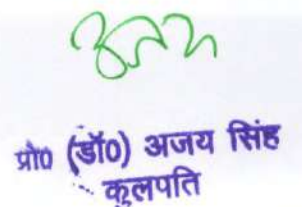 प्रो० (डॉ०) अजय सिंह
कुलपति